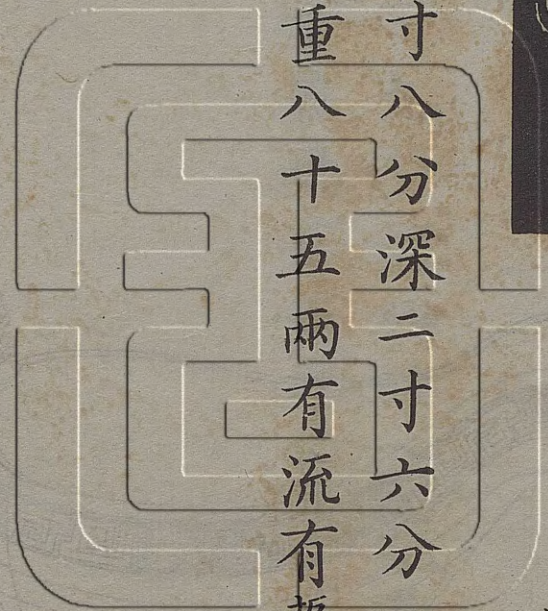 寸八分深二寸六分
重八十五兩有流有